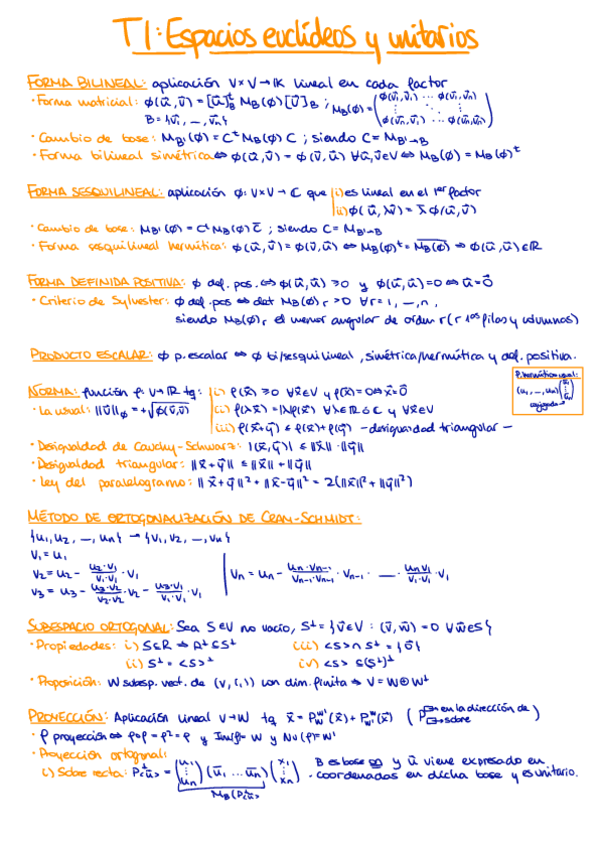 T1: Espacios euclídeos y unitarios
FORMA BILINEAL: aplicación V×V→IK lineal en cada factor
· Forma matricial: φ(u⃗,v⃗) = [u⃗]ᵗ_B M_B(φ) [v⃗]_B ; M_B(φ) = (φ(v⃗₁,v⃗₁) ... φ(v⃗₁,v⃗n)
B = {v⃗₁, —, v⃗n} φ(v⃗n,v⃗₁) ... φ(v⃗n,v⃗n))
· Cambio de base: M_B'(φ) = Cᵗ M_B(φ) C ; siendo C = M_B'→B
· Forma bilineal simétrica ⇔ φ(u⃗,v⃗) = φ(v⃗,u⃗) ∀u⃗,v⃗∈V ⇔ M_B(φ) = M_B(φ)ᵗ
FORMA SESQUILINEAL: aplicación φ: V×V → ℂ que i) es lineal en el 1er factor
ii) φ(u⃗, λv⃗) = λ̄ φ(u⃗,v⃗)
· Cambio de base: M_B'(φ) = Cᵗ M_B(φ) C̄ ; siendo C = M_B'→B
· Forma sesquilineal hermítica: φ(u⃗,v⃗) = φ(v⃗,u⃗) ⇔ M_B(φ)ᵗ = M_B(φ) ⇒ φ(u⃗,u⃗) ∈ ℝ
FORMA DEFINIDA POSITIVA: φ def. pos. ⇔ φ(u⃗,u⃗) ≥ 0 y φ(u⃗,u⃗) = 0 ⇔ u⃗ = 0⃗
· Criterio de Sylvester: φ def. pos ⇔ det M_B(φ)r > 0 ∀r = 1, —, n,
siendo M_B(φ)r el menor angular de orden r (r 1os filas y columnas)
PRODUCTO ESCALAR: φ p. escalar ⇔ φ bi/sesquilineal, simétrica/hermítica y def. positiva.
P. hermítico usual:
(u₁, —, un) (x̄₁ ⋮ x̄n)
conjugado
NORMA: función ρ: V→ℝ tq: i) ρ(x⃗) ≥ 0 ∀x⃗∈V y ρ(x⃗) = 0 ⇔ x⃗ = 0⃗
· La usual: ||v⃗||φ = +√φ(v⃗,v⃗) ii) ρ(λx⃗) = |λ|ρ(x⃗) ∀λ∈ℝ ó ℂ y ∀x⃗∈V
iii) ρ(x⃗+y⃗) ≤ ρ(x⃗) + ρ(y⃗) – desigualdad triangular –
· Desigualdad de Cauchy-Schwarz: |(x⃗,y⃗)| ≤ ||x⃗|| · ||y⃗||
· Desigualdad triangular: ||x⃗+y⃗|| ≤ ||x⃗|| + ||y⃗||
· Ley del paralelogramo: ||x⃗+y⃗||² + ||x⃗-y⃗||² = 2(||x⃗||² + ||y⃗||²)
MÉTODO DE ORTOGONALIZACIÓN DE GRAM-SCHMIDT:
{u₁, u₂, —, un} → {v₁, v₂, —, vn}
v₁ = u₁
v₂ = u₂ - (u₂·v₁)/(v₁·v₁) · v₁
vn = un - (un·vn-1)/(vn-1·vn-1) · vn-1 - — - (un·v₁)/(v₁·v₁) · v₁
v₃ = u₃ - (u₃·v₂)/(v₂·v₂) · v₂ - (u₃·v₁)/(v₁·v₁) · v₁
SUBESPACIO ORTOGONAL: Sea S∈V no vacío, S⊥ = {v⃗∈V : (v⃗,w⃗) = 0 ∀w⃗∈S}
· Propiedades: i) S⊆R ⇒ R⊥⊆S⊥ iii) <S> ∩ S⊥ = {0⃗}
ii) S⊥ = <S>⊥ iv) <S> ⊆ (S⊥)⊥
· Proposición: W subesp. vect. de (V,(,)) con dim. finita ⇒ V = W⊕W⊥
PROYECCIÓN: Aplicación lineal V→W tq x⃗ = P_W^W'(x⃗) + P_W'^W(x⃗) (P en la dirección de / sobre)
· ρ proyección ⇔ ρ∘ρ = ρ² = ρ y Im(ρ) = W y Nu(ρ) = W'
· Proyección ortogonal:
i) Sobre recta: P⊥<u⃗> = (u₁ ⋮ un) (ū₁ ... ūn) (x₁ ⋮ xn) B es base on y u⃗ viene expresado en
M_B(P⊥<u⃗>) coordenadas en dicha base y es unitario.